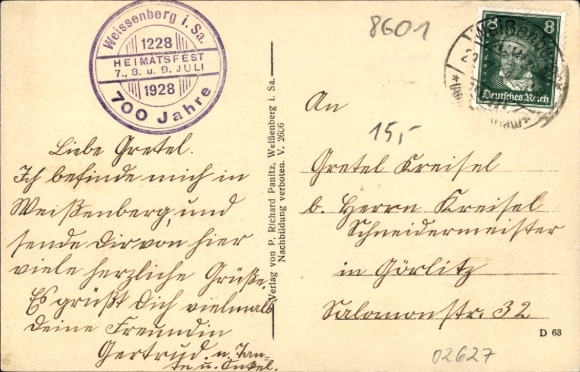 Weissenberg i. Sa.
1228
HEIMATSFEST
7., 8. u. 9. JULI
1928
700 Jahre
8601
8 8
Deutsches Reich
Liebe Gretel.
Ich befinde mich in
Weißenberg, und
sende Dir von hier
viele herzliche Grüße.
Es grüßt Dich vielmals
Deine Freundin
Gertrud. u. Tan-
te u. Onkel.
Verlag von P. Richard Panitz, Weißenberg i. Sa.
Nachbildung verboten. V. 2606
An
15,-
Gretel Kreisel
b. Herrn Kreisel
Schneidermeister
in Görlitz
Salomonstr. 32
D 63
02627